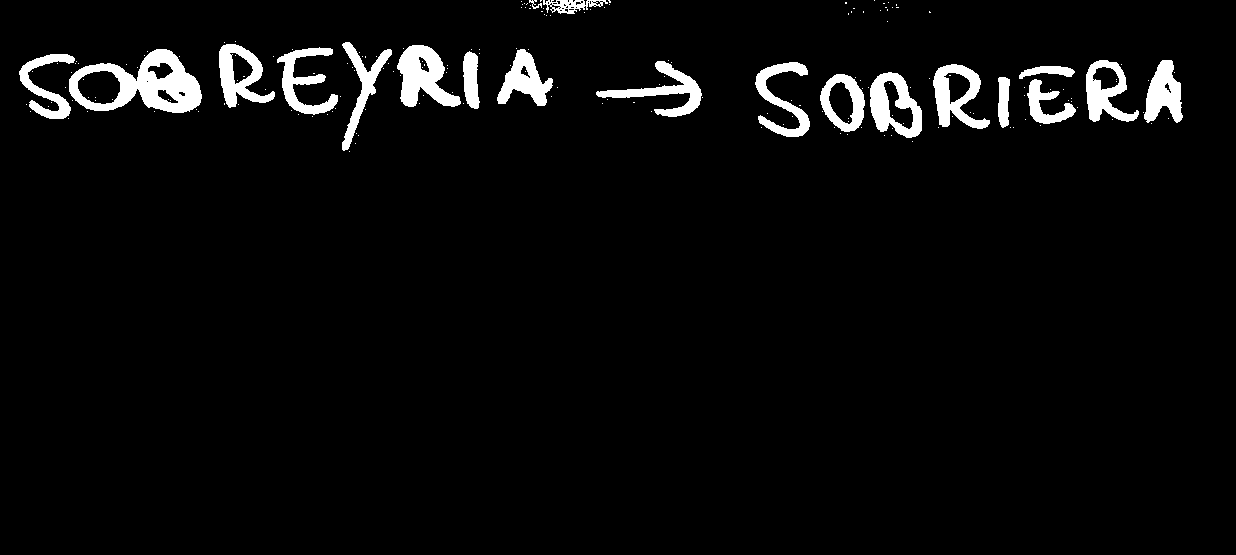 SOBREYRIA → SOBRIERA